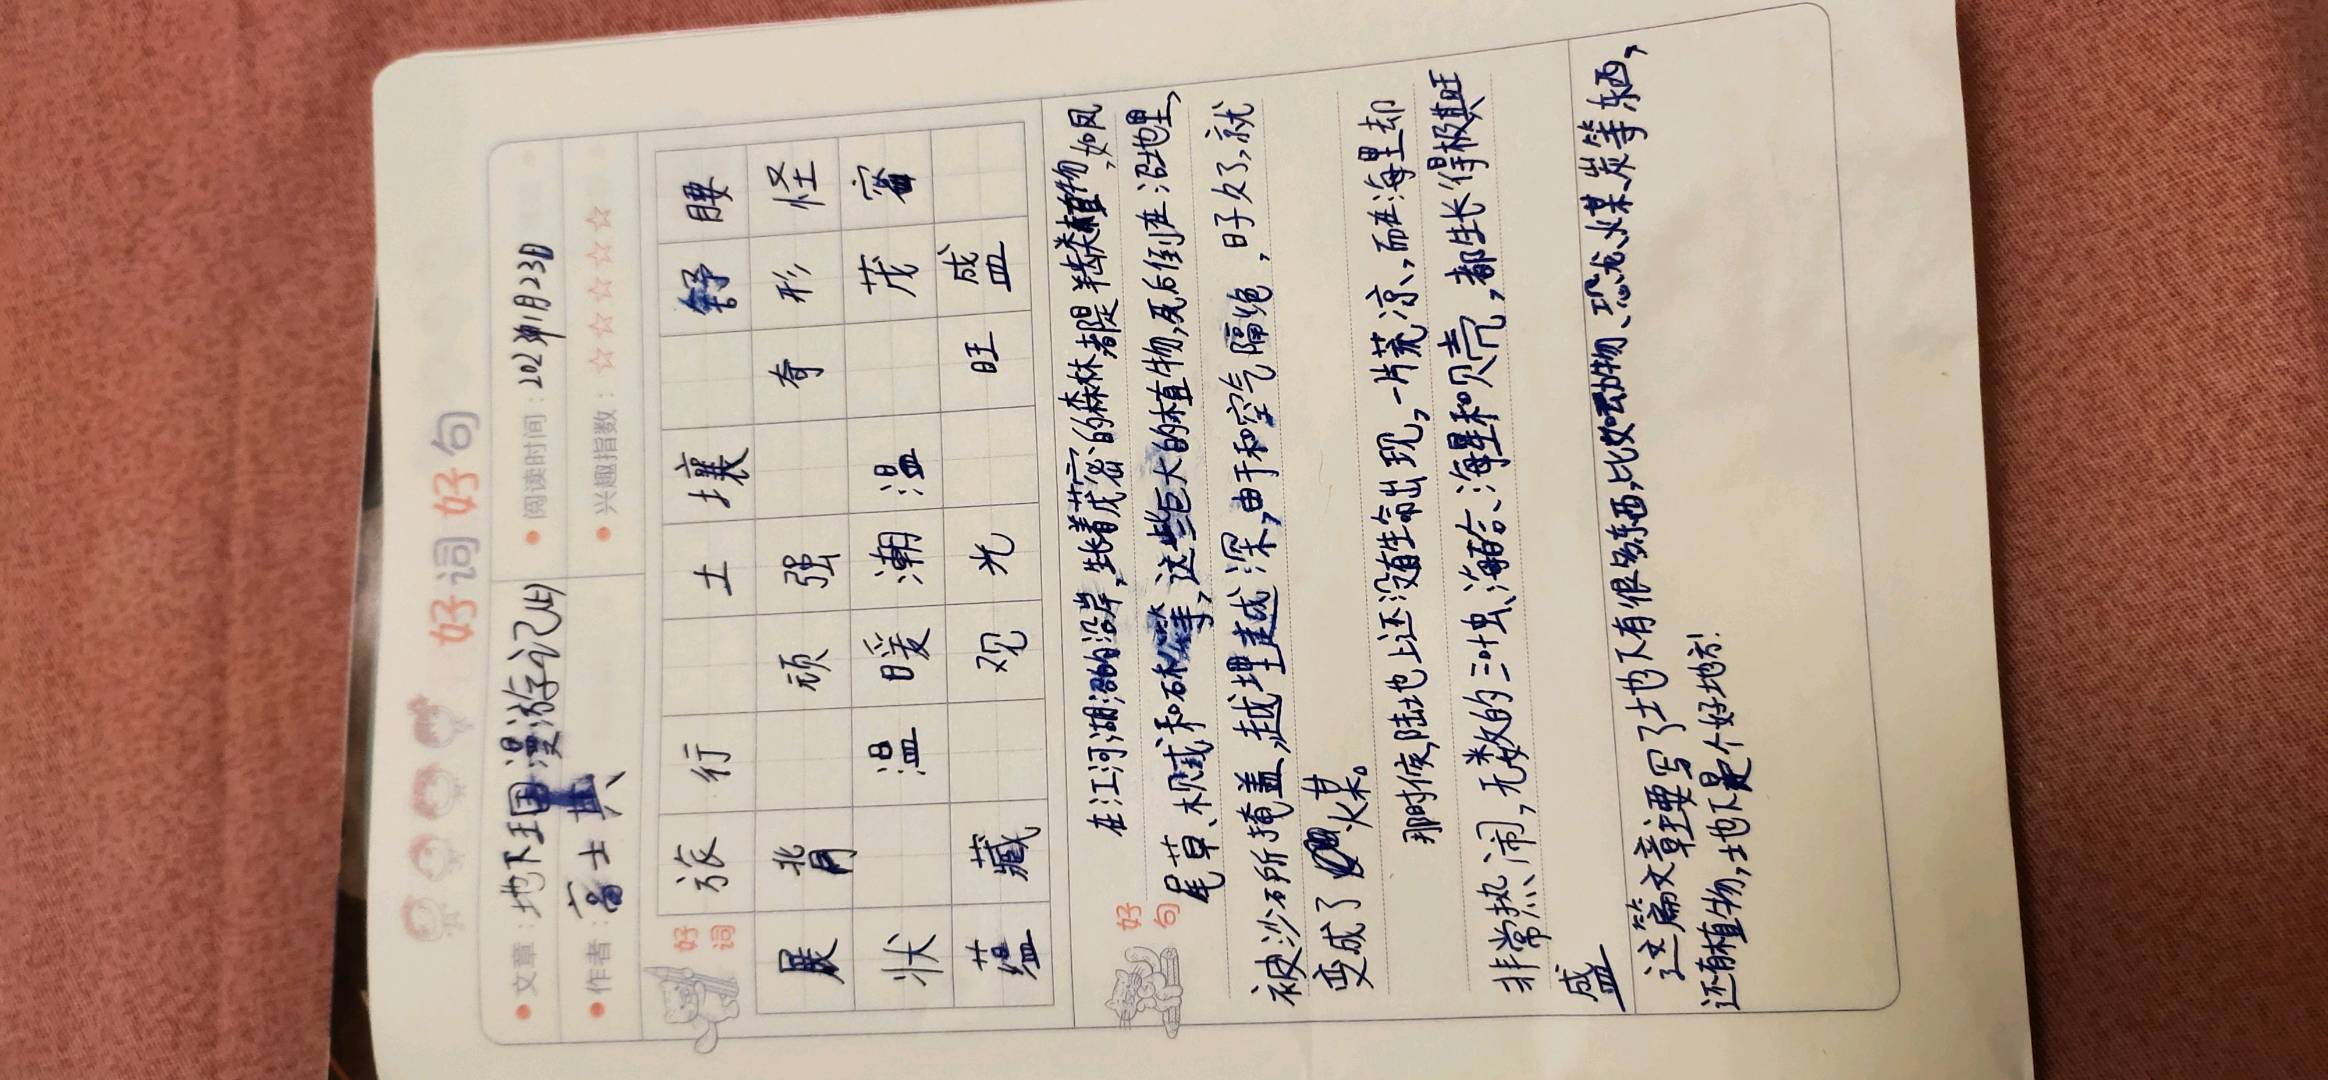 好词好句
文章：地下王国漫游记(上)
阅读时间：202年1月23日
作者：高士其
兴趣指数：☆☆☆☆☆
好词
旅行 土壤 舒腰
展背 顽强 奇形怪
状 温暖潮温 茂密
蕴藏 观光 旺盛
好句
在江河湖泊的沿岸,生长着茂密的森林,都是羊齿类植物,如凤
尾草、木贼和石松等,这些巨大的植物,死后倒在沼地里,
被沙石所掩盖,越埋越深,由于和空气隔绝,日子久了,就
变成了煤。
那时候,陆地上还没有生命出现,一片荒凉,而在海里却
非常热闹,无数的三叶虫、海百合、海星和贝壳,都生长得极其旺
盛
这篇文章主要写了土地下有很多东西,比如动物、恐龙、煤炭等东西,
还有植物,土地下是个好地方!